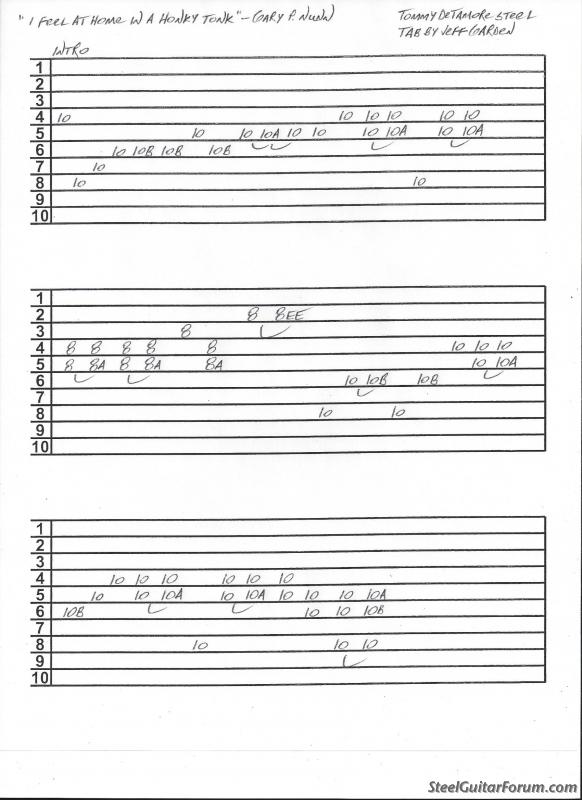 "I FEEL AT HOME IN A HONKY TONK" - GARY P. NUNN
TOMMY DETAMORE STEEL
TAB BY JEFF GARDEN
INTRO
1
2
3
4 10 10 10 10 10 10
5 10 10 10A 10 10 10 10A 10 10A
6 10 10B 10B 10B
7 10
8 10 10
9
10
1
2 8 8EE
3 8
4 8 8 8 8 8 10 10 10
5 8 8A 8 8A 8A 10 10A
6 10 10B 10B
7
8 10 10
9
10
1
2
3
4 10 10 10 10 10 10
5 10 10 10A 10 10A 10 10 10 10A
6 10B 10 10 10B
7
8 10 10 10
9
10
SteelGuitarForum.com